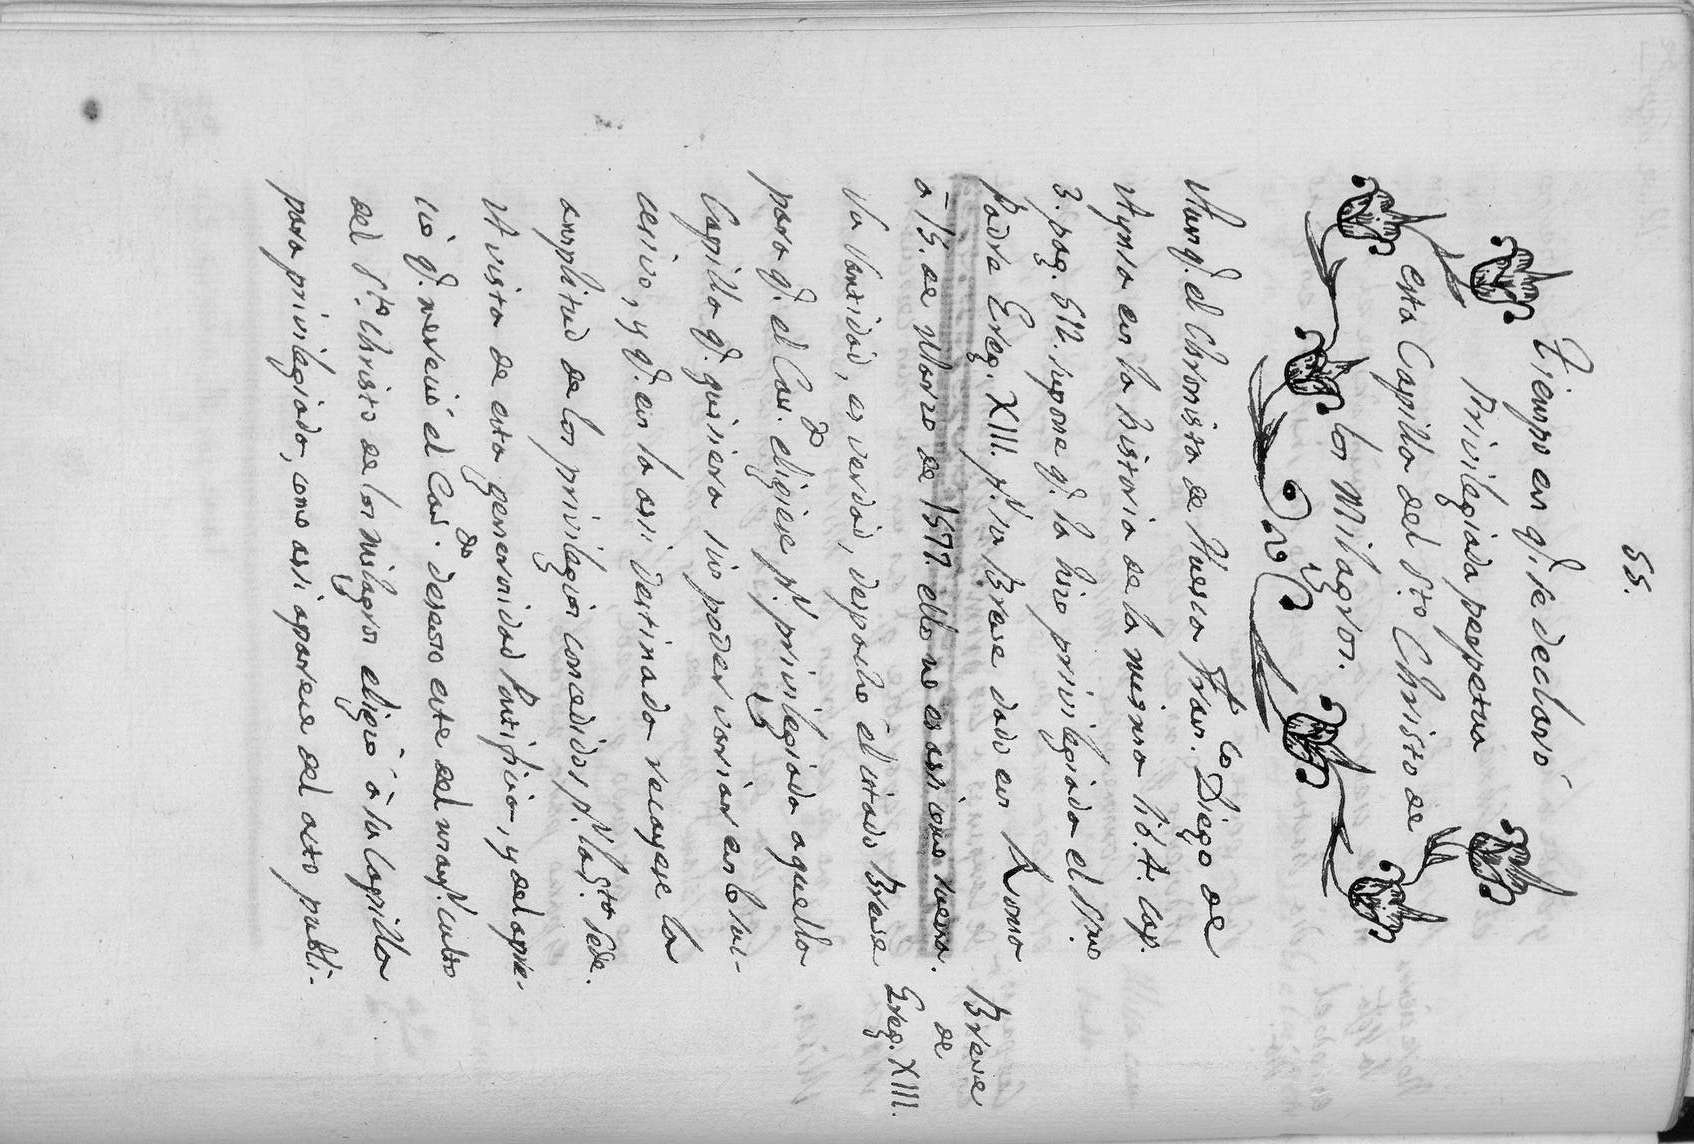 55.
Tiempo en q.e se declaró
Privilegiada perpetua
esta Capilla del S.to Christo de
los Milagros.
Aunq.e el Chronista de Huesca Fran.co Diego de
Aynsa en la historia de la misma lib. 4. Cap.
3. pag. 512. supone q.e la hizo privilegiada el S.mo
Padre Greg. XIII. p.r su Breve dado en Roma
a 15. de Marzo de 1577. ello no es assi como suena.
Breve
de
Greg. XIII.
Su Santidad, es verdad, despachó el citado Breve
para q.e el Cav.do eligiese p.r privilegiada aquella
Capilla q.e quisiera sin poder variar en lo suc-
cesivo, y q.e en la assi destinada recayese la
amplitud de los privilegios concedidos p.r la S.ta Sede.
A vista de esta generosidad Pontificia, y del apre-
cio q.e mereció el Cav.do deseoso este del mayor culto
del S.to Christo de los Milagros eligió á su Capilla
para privilegiada, como assi aparece del acto publi-